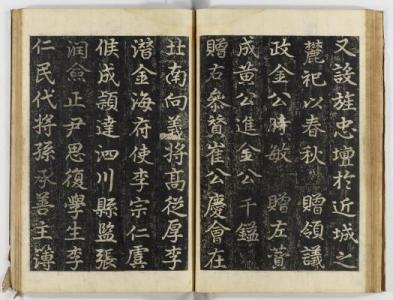 又設旌忠壇於近城之
麓祀以春秋 贈領議
政金公時敏 贈左贊
成黃公進金公千鎰
贈右參贊崔公慶會在
北南向義將高從厚李
潛金海府使李宗仁虞
候成頴達泗川縣監張
潤僉正尹思復學生李
仁民代將孫承善主簿